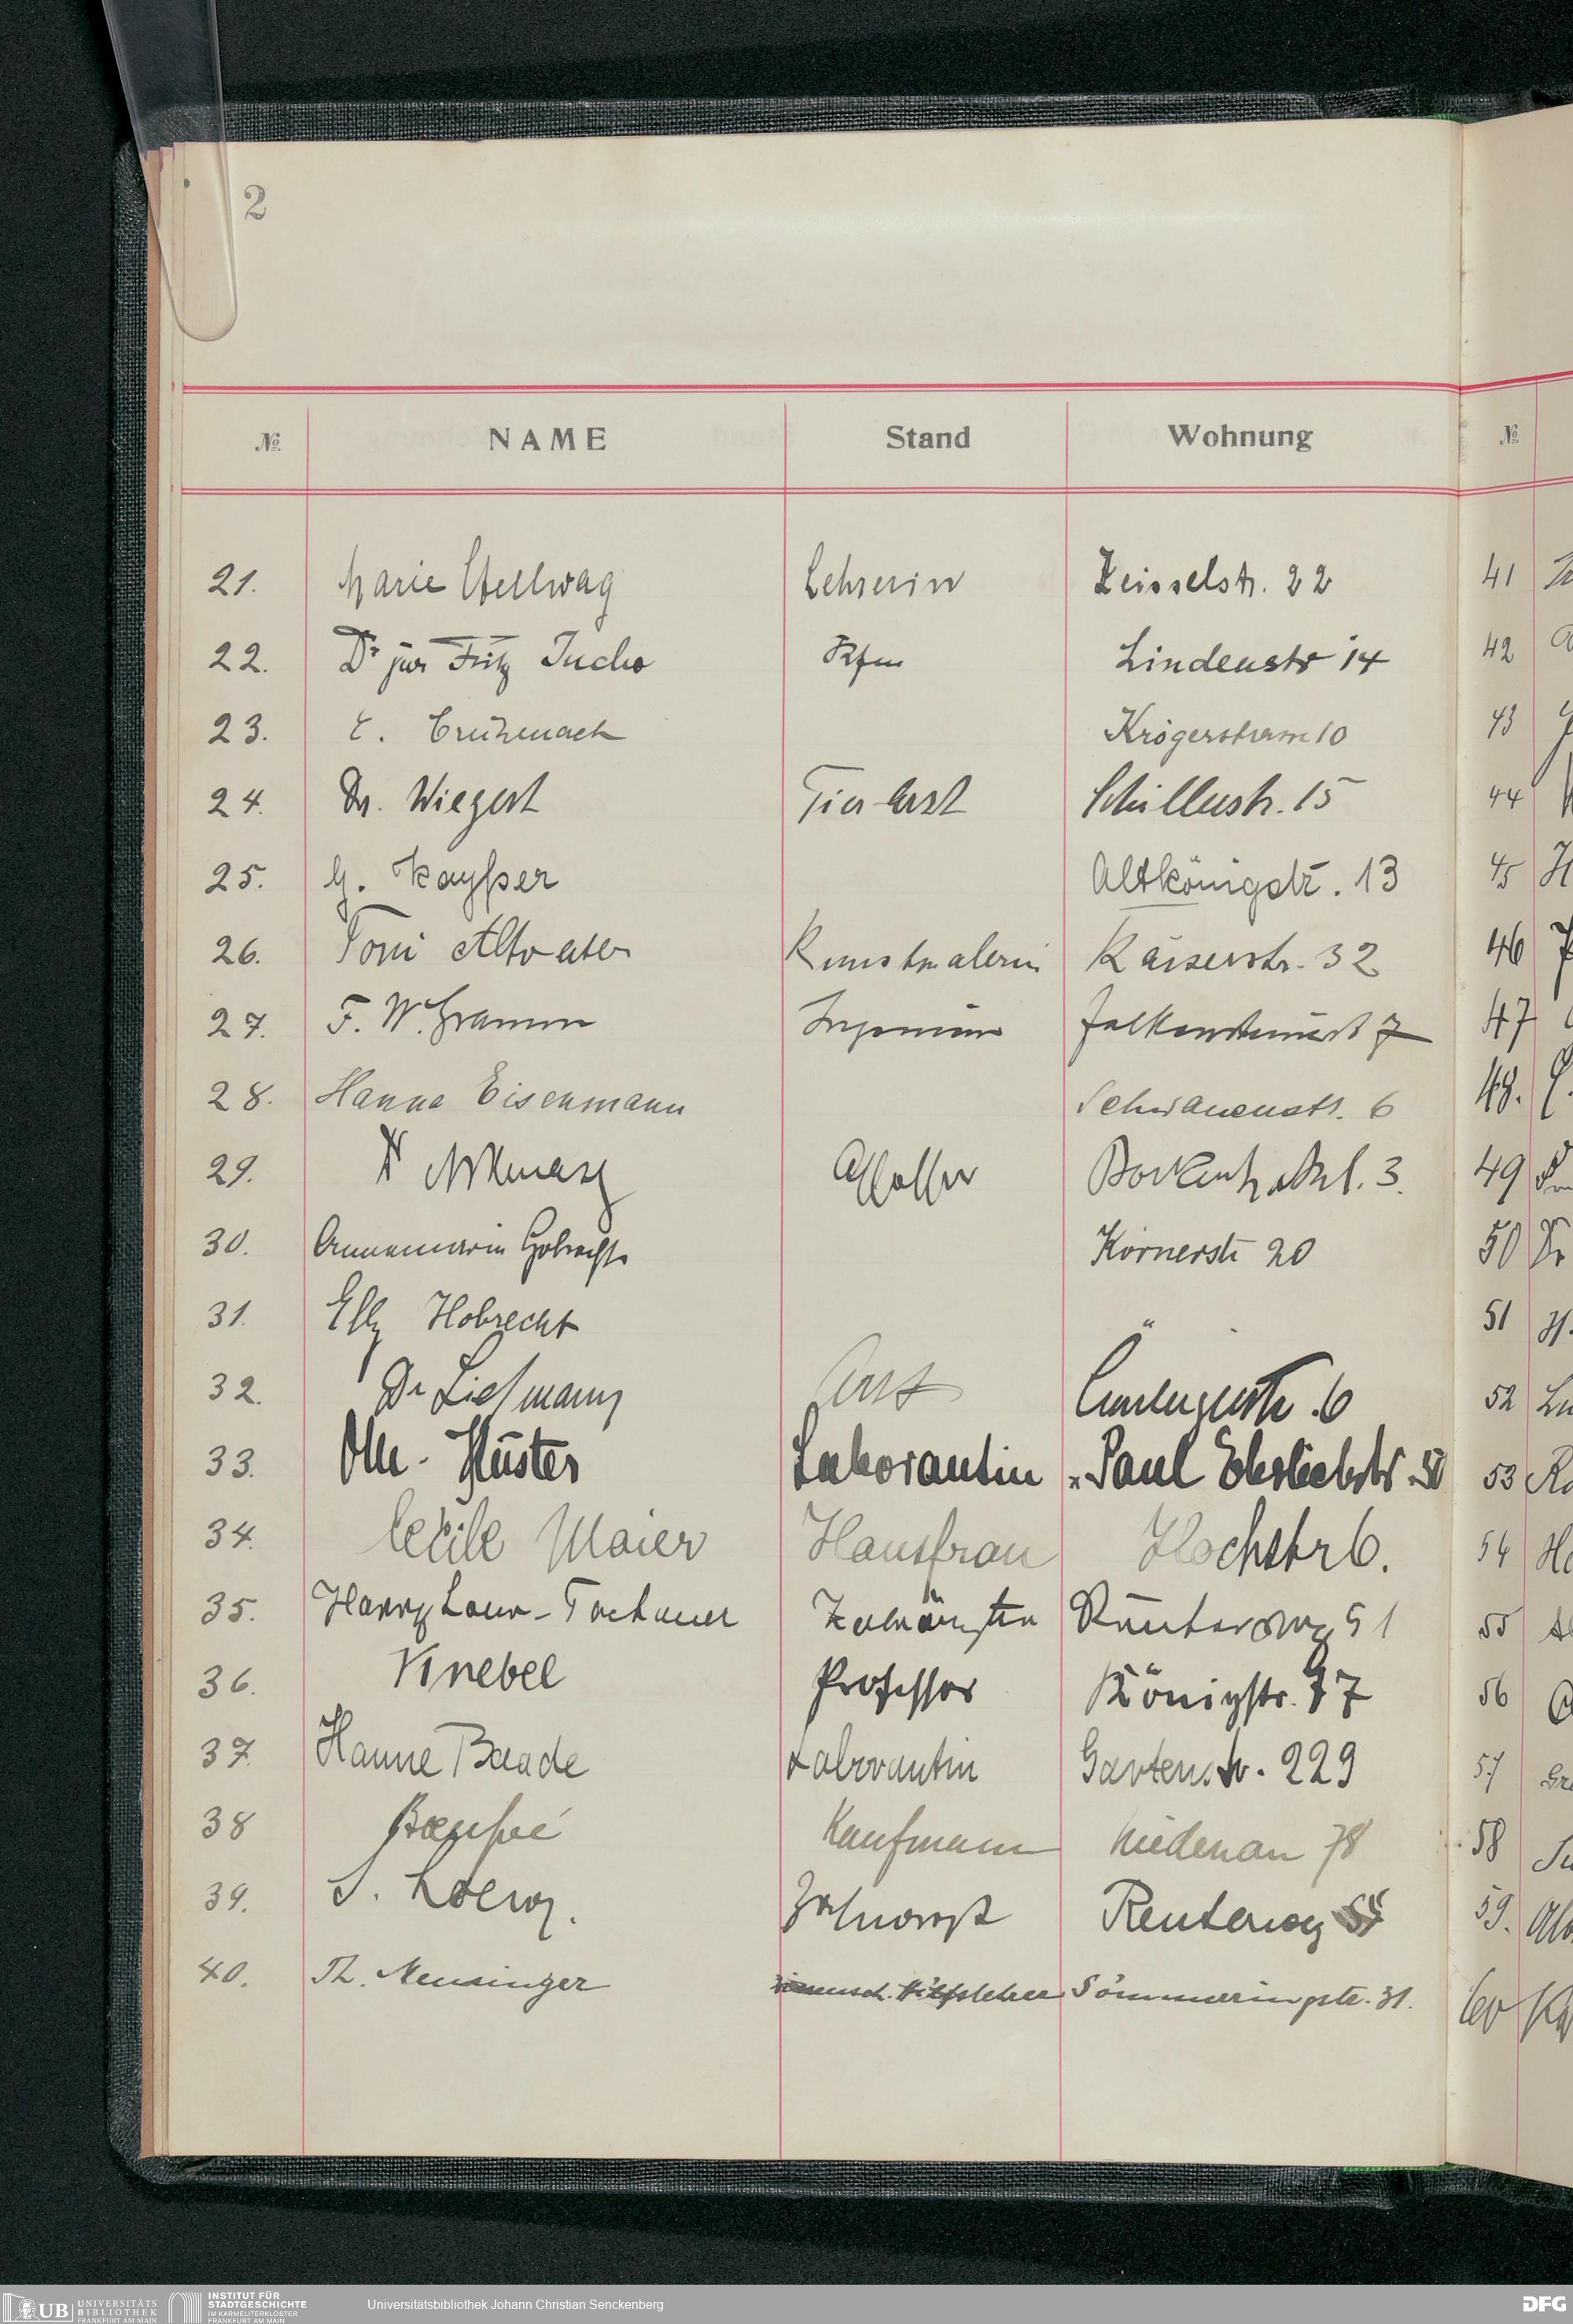 2
№ NAME Stand Wohnung №
21. Marie Stellwag Lehrerin Zeisselstr. 22 41
22. Dr jur Fritz Tucho Kfm Lindenstr 14 42
23. E. Crüzmach Krögerstrasse 10 43
24. Dr. Wiegert Tierarzt Schillerstr. 15 44
25. G. Kaysser Altkönigstr. 13 45
26. Toni Altvater Kunstmalerin Kaiserstr. 32 46
27. F. W. Gramm Ingenieur Falkensteinerst 7 47
28. Hanna Eisenmann Schwanenstr. 6 48.
29. Dr Assessor 3. 49
30. Annemarie Hobrecht Körnerstr 20 50
31. Elly Hobrecht " 51
32. Dr Liefmann Arzt 6 52
33. Küster Laborantin Paul Ehrlichstr 53
34. Cécile Maier Hausfrau Hochstr 6. 54
35. Harry Zahnärztin Reuterweg 51 55
36. Knebel Professor Königstr. 77 56
37. Hanne Baade Laborantin Gartenstr. 229 57
38 Kaufmann Niedenau 78 58
39. S. Loewy. Zahnarzt Reuterweg 59.
40. Th. Neusinger Hilfslehrer Sömmeringstr. 31. 60
UB UNIVERSITÄTS BIBLIOTHEK FRANKFURT AM MAIN
INSTITUT FÜR STADTGESCHICHTE IM KARMELITERKLOSTER FRANKFURT AM MAIN
Universitätsbibliothek Johann Christian Senckenberg
DFG